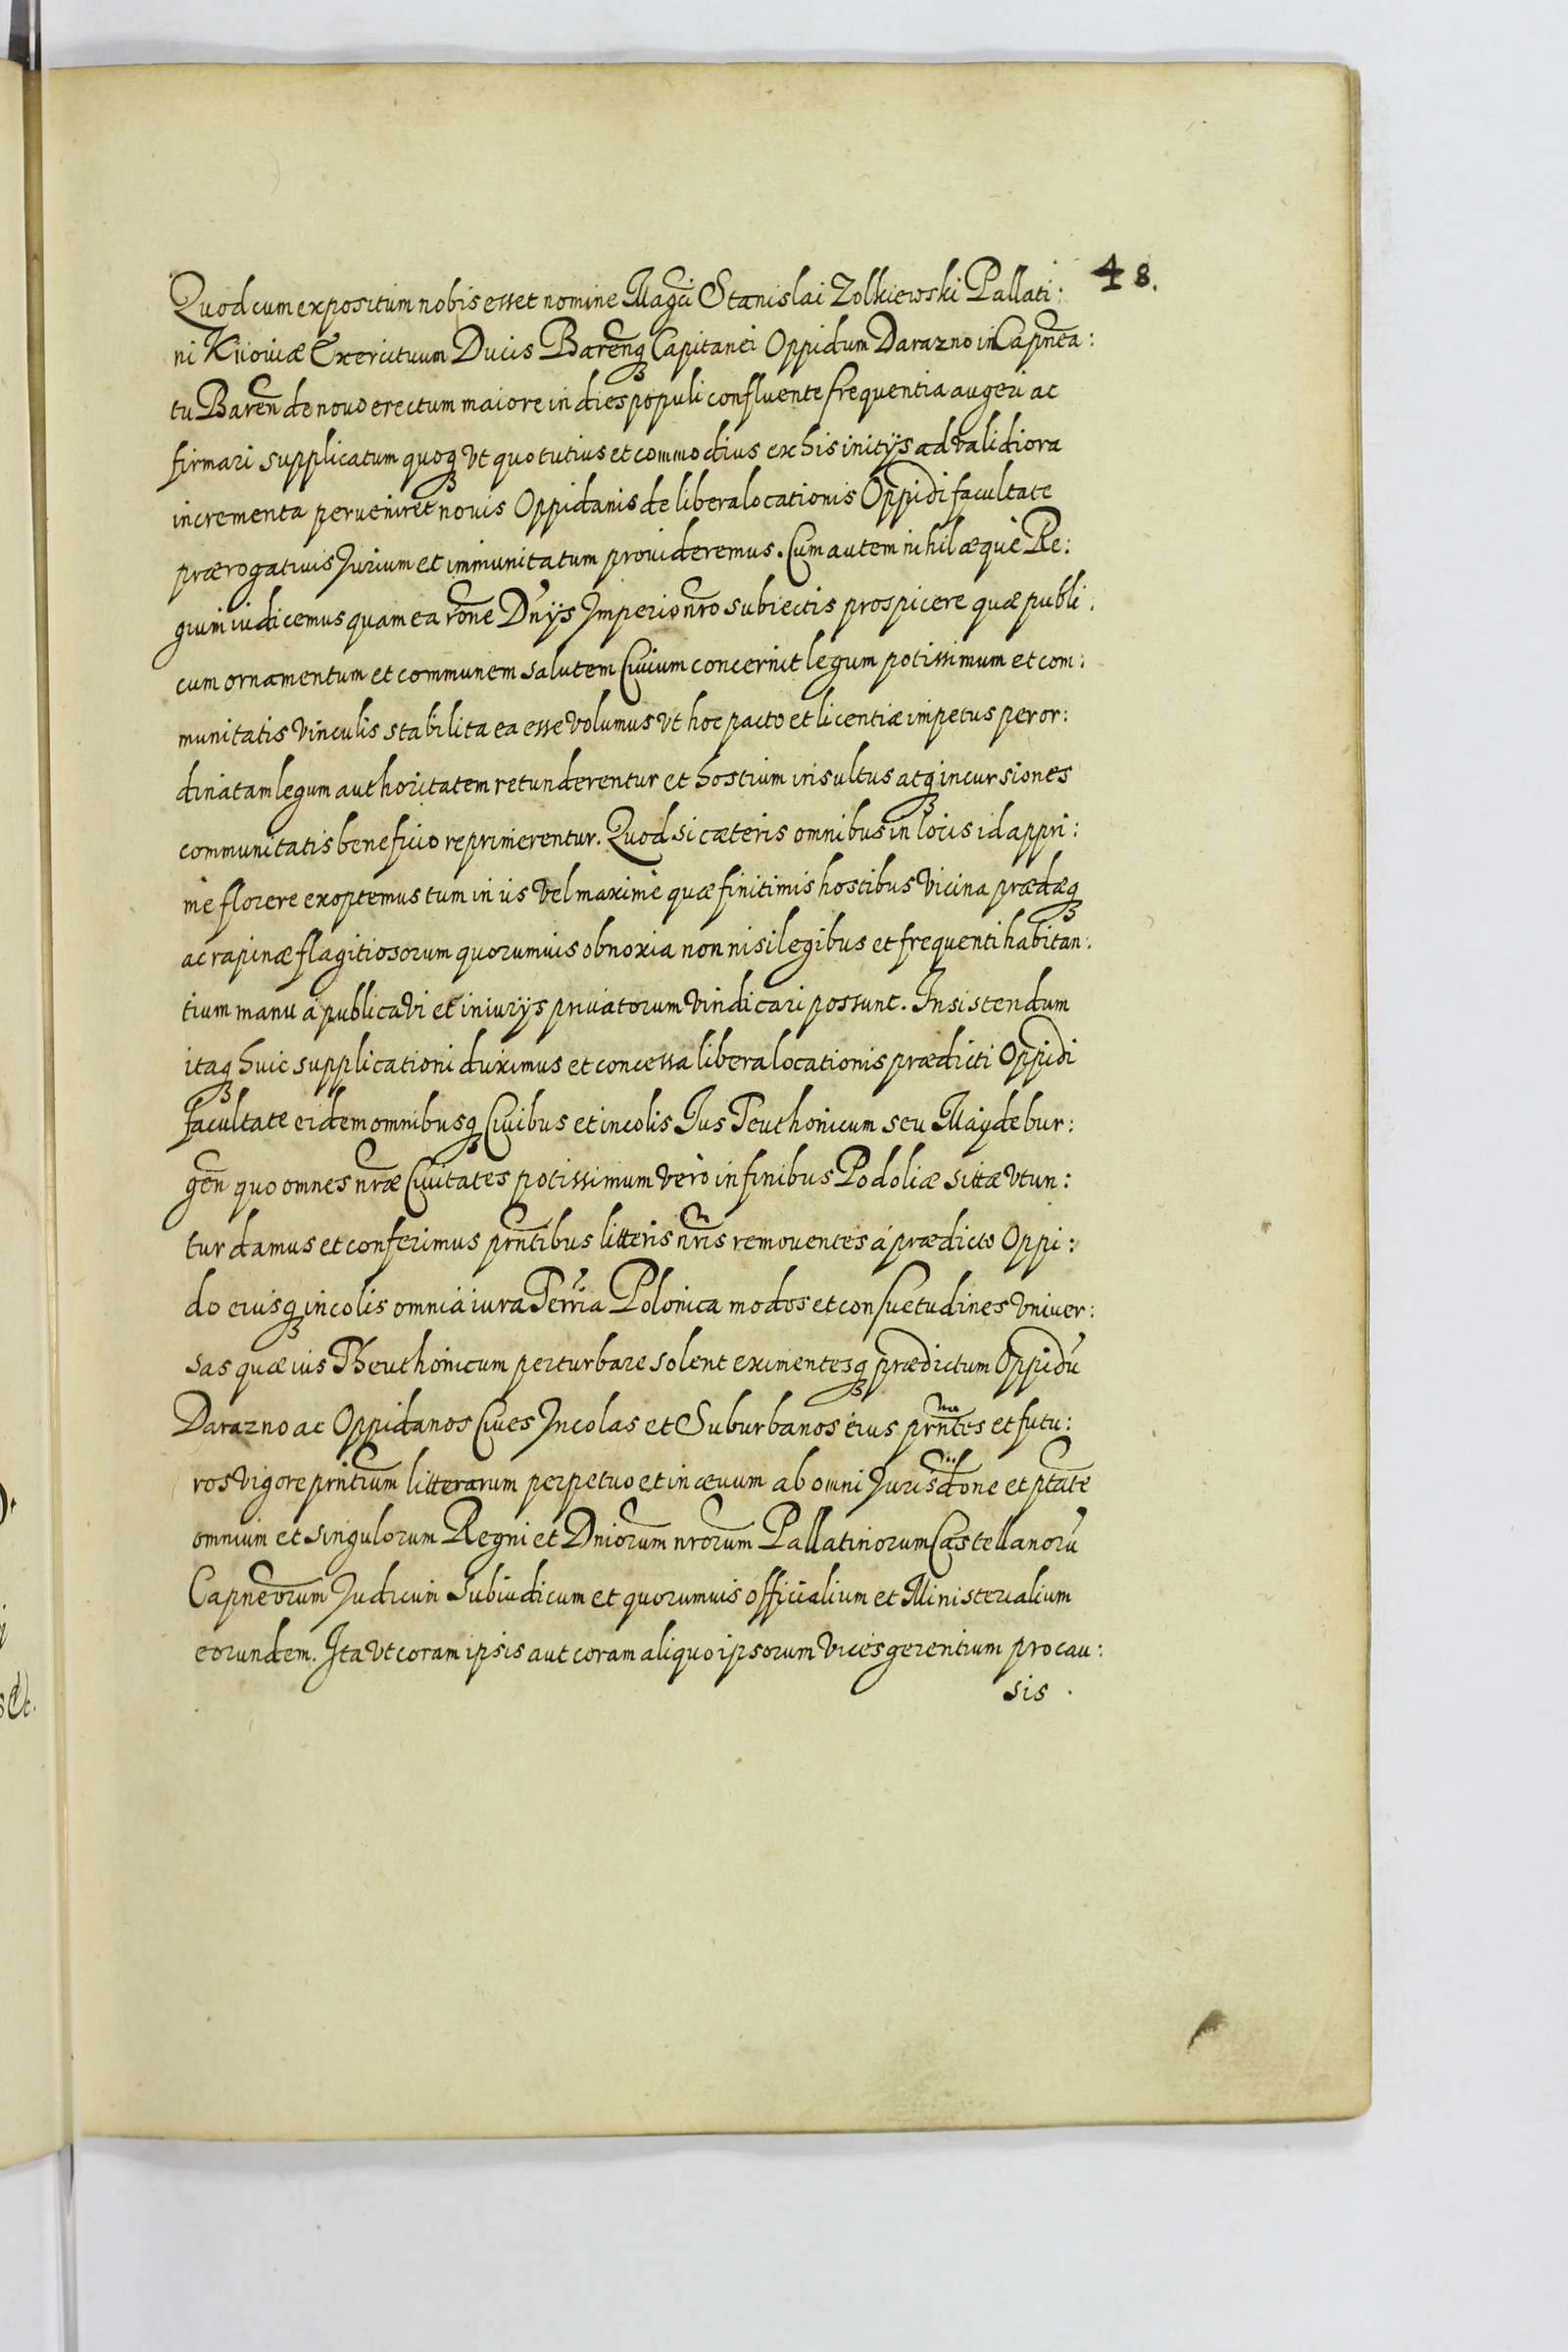 48.
Quod cum expositum nobis esset nomine Magci Stanislai Zolkiewski Pallati:
ni Kiiouiæ Exercituum Ducis Barenq Capitanei Oppidum Darazno in Capnea:
tu Baren de nouo erectum maiore in dies populi confluente frequentia augeri ac
firmari supplicatum quoq vt quo tutius et commodius ex his initijs ad validiora
incrementa perueniret nouis Oppidanis de libera locationis Oppidi facultate
prærogatiuis Jurium et immunitatum prouideremus. Cum autem nihil æquè Re:
gium iudicemus quam ea rone Dnijs Imperio nro subiectis prospicere quæ publi:
cum ornamentum et communem salutem Ciuium concernit legum potissimum et com:
munitatis vinculis stabilita ea esse volumus vt hoc pacto et licentiæ impetus per or:
dinatam legum authoritatem retunderentur et hostium insultus atq incursiones
communitatis beneficio reprimerentur. Quod si cæteris omnibus in locis id appri:
me florere exoptemus tum in iis vel maximè quæ finitimis hostibus vicina prædæq
ac rapinæ flagitiosorum quorumuis obnoxia non nisi legibus et frequenti habitan:
tium manu à publica vi et iniurijs priuatorum vindicari possunt. Insistendum
itaq huic supplicationi duximus et concessa libera locationis prædicti Oppidi
facultate eidem omnibusq Ciuibus et incolis Ius Teuthonicum seu Maydebur:
gen quo omnes nræ Ciuitates potissimum verò in finibus Podoliæ sittæ vtun:
tur damus et conferimus prntibus litteris nris remouentes á prædicto Oppi:
do eiusq incolis omnia iura Terria Polonica modos et consuetudines vniuer:
sas quæ ius Theuthonicum perturbare solent eximentesq prædictum Oppidū
Darazno ac Oppidanos Ciues Incolas et Suburbanos eius prntes et futu:
ros vigore prntium litterarum perpetuo et in æuum ab omni Jurisdone et ptate
omnium et singulorum Regni et Dniorum nrorum Pallatinorum Castellanorū
Capneorum Judicum Subiudicum et quorumuis officialium et Ministerialium
eorundem. Ita vt coram ipsis aut coram aliquo ipsorum vices gerentium pro cau:
sis.